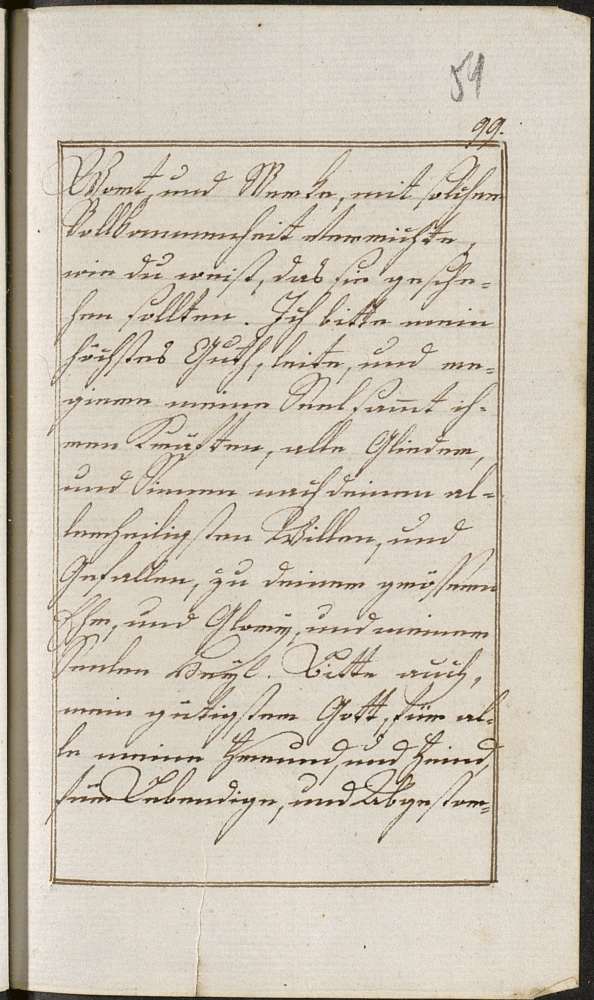 54
99.
Wort, und Werke, mit solcher
Vollkommenheit verrichte,
wie du weist, das sie gesche-
hen sollten. Ich bitte mein
höchstes Guth, leite, und re-
giere meine Seel samt ih-
ren Kräften, alle Glieder,
und Sinnen nach deinem al-
lerheiligsten Willen, und
Gefallen, zu deiner grössern
Ehr, und Glory, und meiner
Seelen Heyl. Bitte auch,
mein gütigster Gott, für al-
le meine Freund, und Feind,
für Lebendige, und Abgestor-